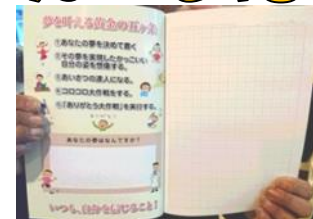 夢を叶える黄金の五ヶ条
①あなたの夢を決めて書く
②その夢を実現したかっこいい
自分の姿を想像する。
③あいさつの達人になる。
④コロコロ大作戦をする。
⑤「ありがとう大作戦」を実行する。
あなたの夢はなんですか?
いつも、自分を信じること!